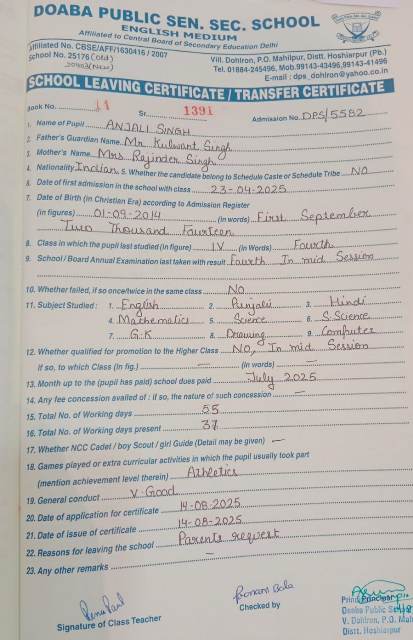 DOABA PUBLIC SEN. SEC. SCHOOL
ENGLISH MEDIUM
Affiliated to Central Board of Secondary Education Delhi
Affiliated No. CBSE/AFF/1630416 / 2007
School No. 25176 (Old)
20463 (New)
Vill. Dohlron, P.O. Mahilpur, Distt. Hoshiarpur (Pb.)
Tel. 01884-245496, Mob.99143-43496,99143-41496
E-mail : dps_dohlron@yahoo.co.in
SCHOOL LEAVING CERTIFICATE / TRANSFER CERTIFICATE
Book No. 11 Sr. 1391 Admission No. DPS/5582
1. Name of Pupil ANJALI SINGH
2. Father's Guardian Name Mr. Kulwant Singh
3. Mother's Name Mrs Rajinder Singh
4. Nationality Indian 5. Whether the candidate belong to Schedule Caste or Schedule Tribe NO
6. Date of first admission in the school with class 23-04-2025
7. Date of Birth (in Christian Era) according to Admission Register
(in figures) 01-09-2014 (in words) First September
Two Thousand Fourteen
8. Class in which the pupil last studied (in figure) IV (in Words) Fourth
9. School / Board Annual Examination last taken with result Fourth In mid Session
10. Whether failed, if so once/twice in the same class NO
11. Subject Studied : 1. English 2. Punjabi 3. Hindi
4. Mathematics 5. Science 6. S.Science
7. G.K 8. Drawing 9. Computer
12. Whether qualified for promotion to the Higher Class NO, In mid Session
If so, to which Class (in fig.) — (in words) —
13. Month up to the (pupil has paid) school dues paid July 2025
14. Any fee concession availed of : if so, the nature of such concession —
15. Total No. of Working days 55
16. Total No. of Working days present 37
17. Whether NCC Cadet / boy Scout / girl Guide (Detail may be given) —
18. Games played or extra curricular activities in which the pupil usually took part
(mention achievement level therein) Athletics
19. General conduct V. Good
20. Date of application for certificate 14-08-2025
21. Date of issue of certificate 14-08-2025
22. Reasons for leaving the school Parents request
23. Any other remarks —
Signature of Class Teacher
Poonam Bala
Checked by
Principal
Doaba Public
V. Dohlron, P.O. Mah
Distt. Hoshiarpur